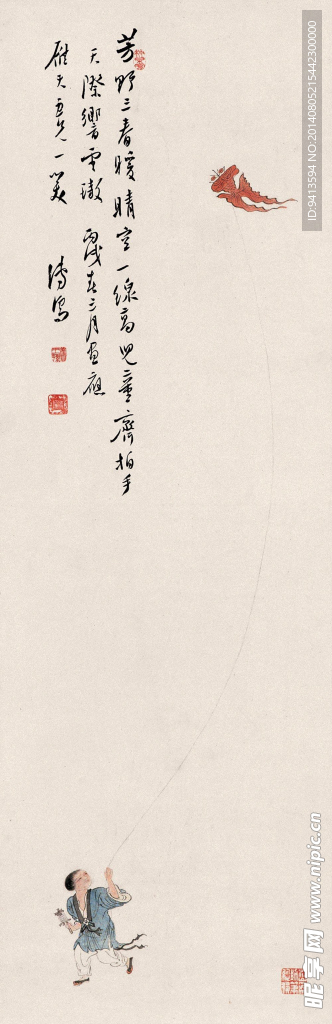 芳野三春暖晴空一線高児童齊拍手
天際響雲璈 丙戌春三月画應
雁天吾兄一笑 溥儒
ID: 9413594 NO:20140805215442300000
昵享网 www.nipic.cn